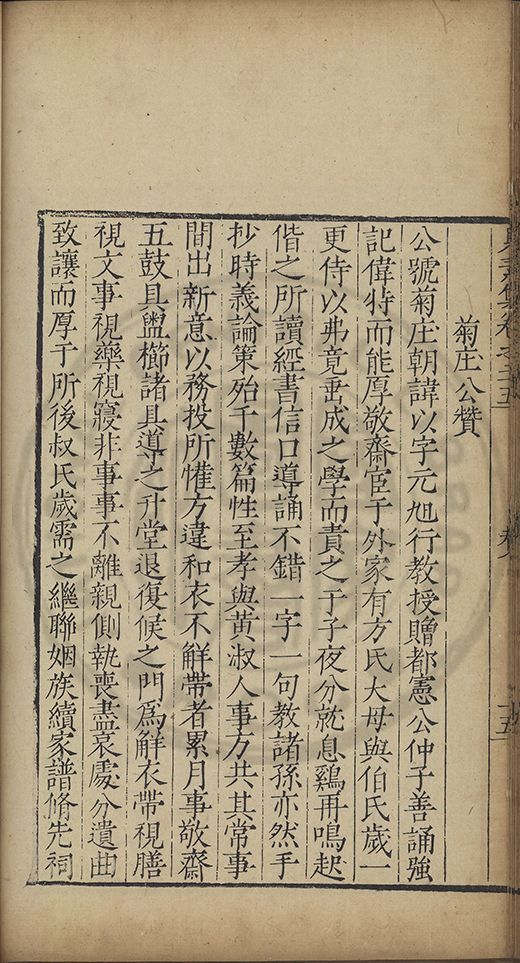 菊庄公贊
公號菊庄朝諱以字元旭行教授贈都憲公仲子善誦強
記偉特而能厚敬齋宦于外家有方氏大母與伯氏歲一
更侍以弗竟垂成之學而責之于子夜分就息鷄再鳴起
偕之所讀經書信口導誦不錯一字一句教諸孫亦然手
抄時義論策殆千數篇性至孝與黃淑人事方共其常事
間出新意以務投所懽方違和衣不解帶者累月事敬齋
五鼓具盥櫛諸具導之升堂退復候之門爲解衣帶視膳
視文事視藥視寢非事事不離親側執喪盡哀處分遺曲
致讓而厚于所後叔氏歲需之繼聯姻族續家譜脩先祠